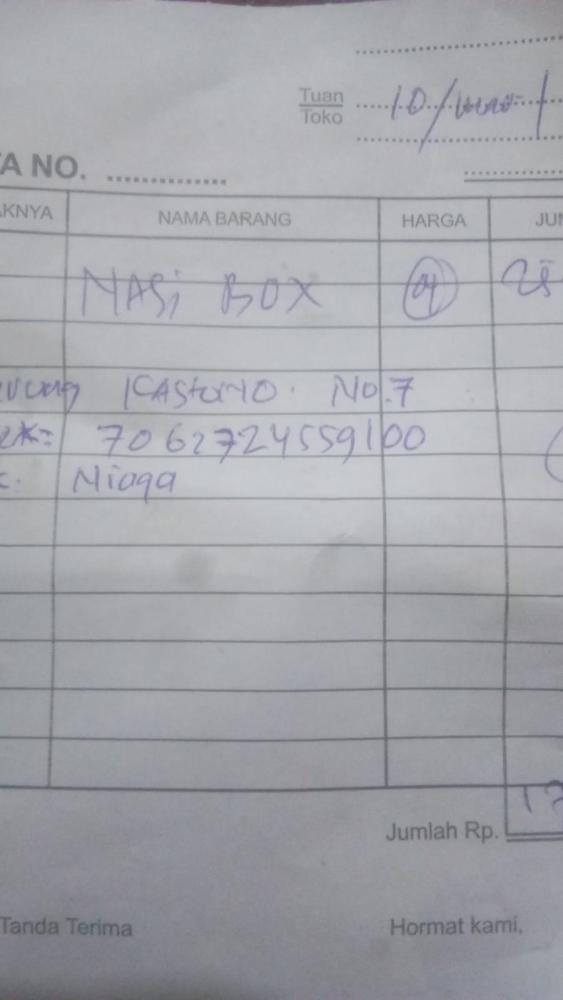 Tuan
Toko 10/
A NO.
AKNYA NAMA BARANG HARGA JUM
NASi BOX @
No.7
7062724559100
Niaga
Jumlah Rp. 17
Tanda Terima Hormat kami,